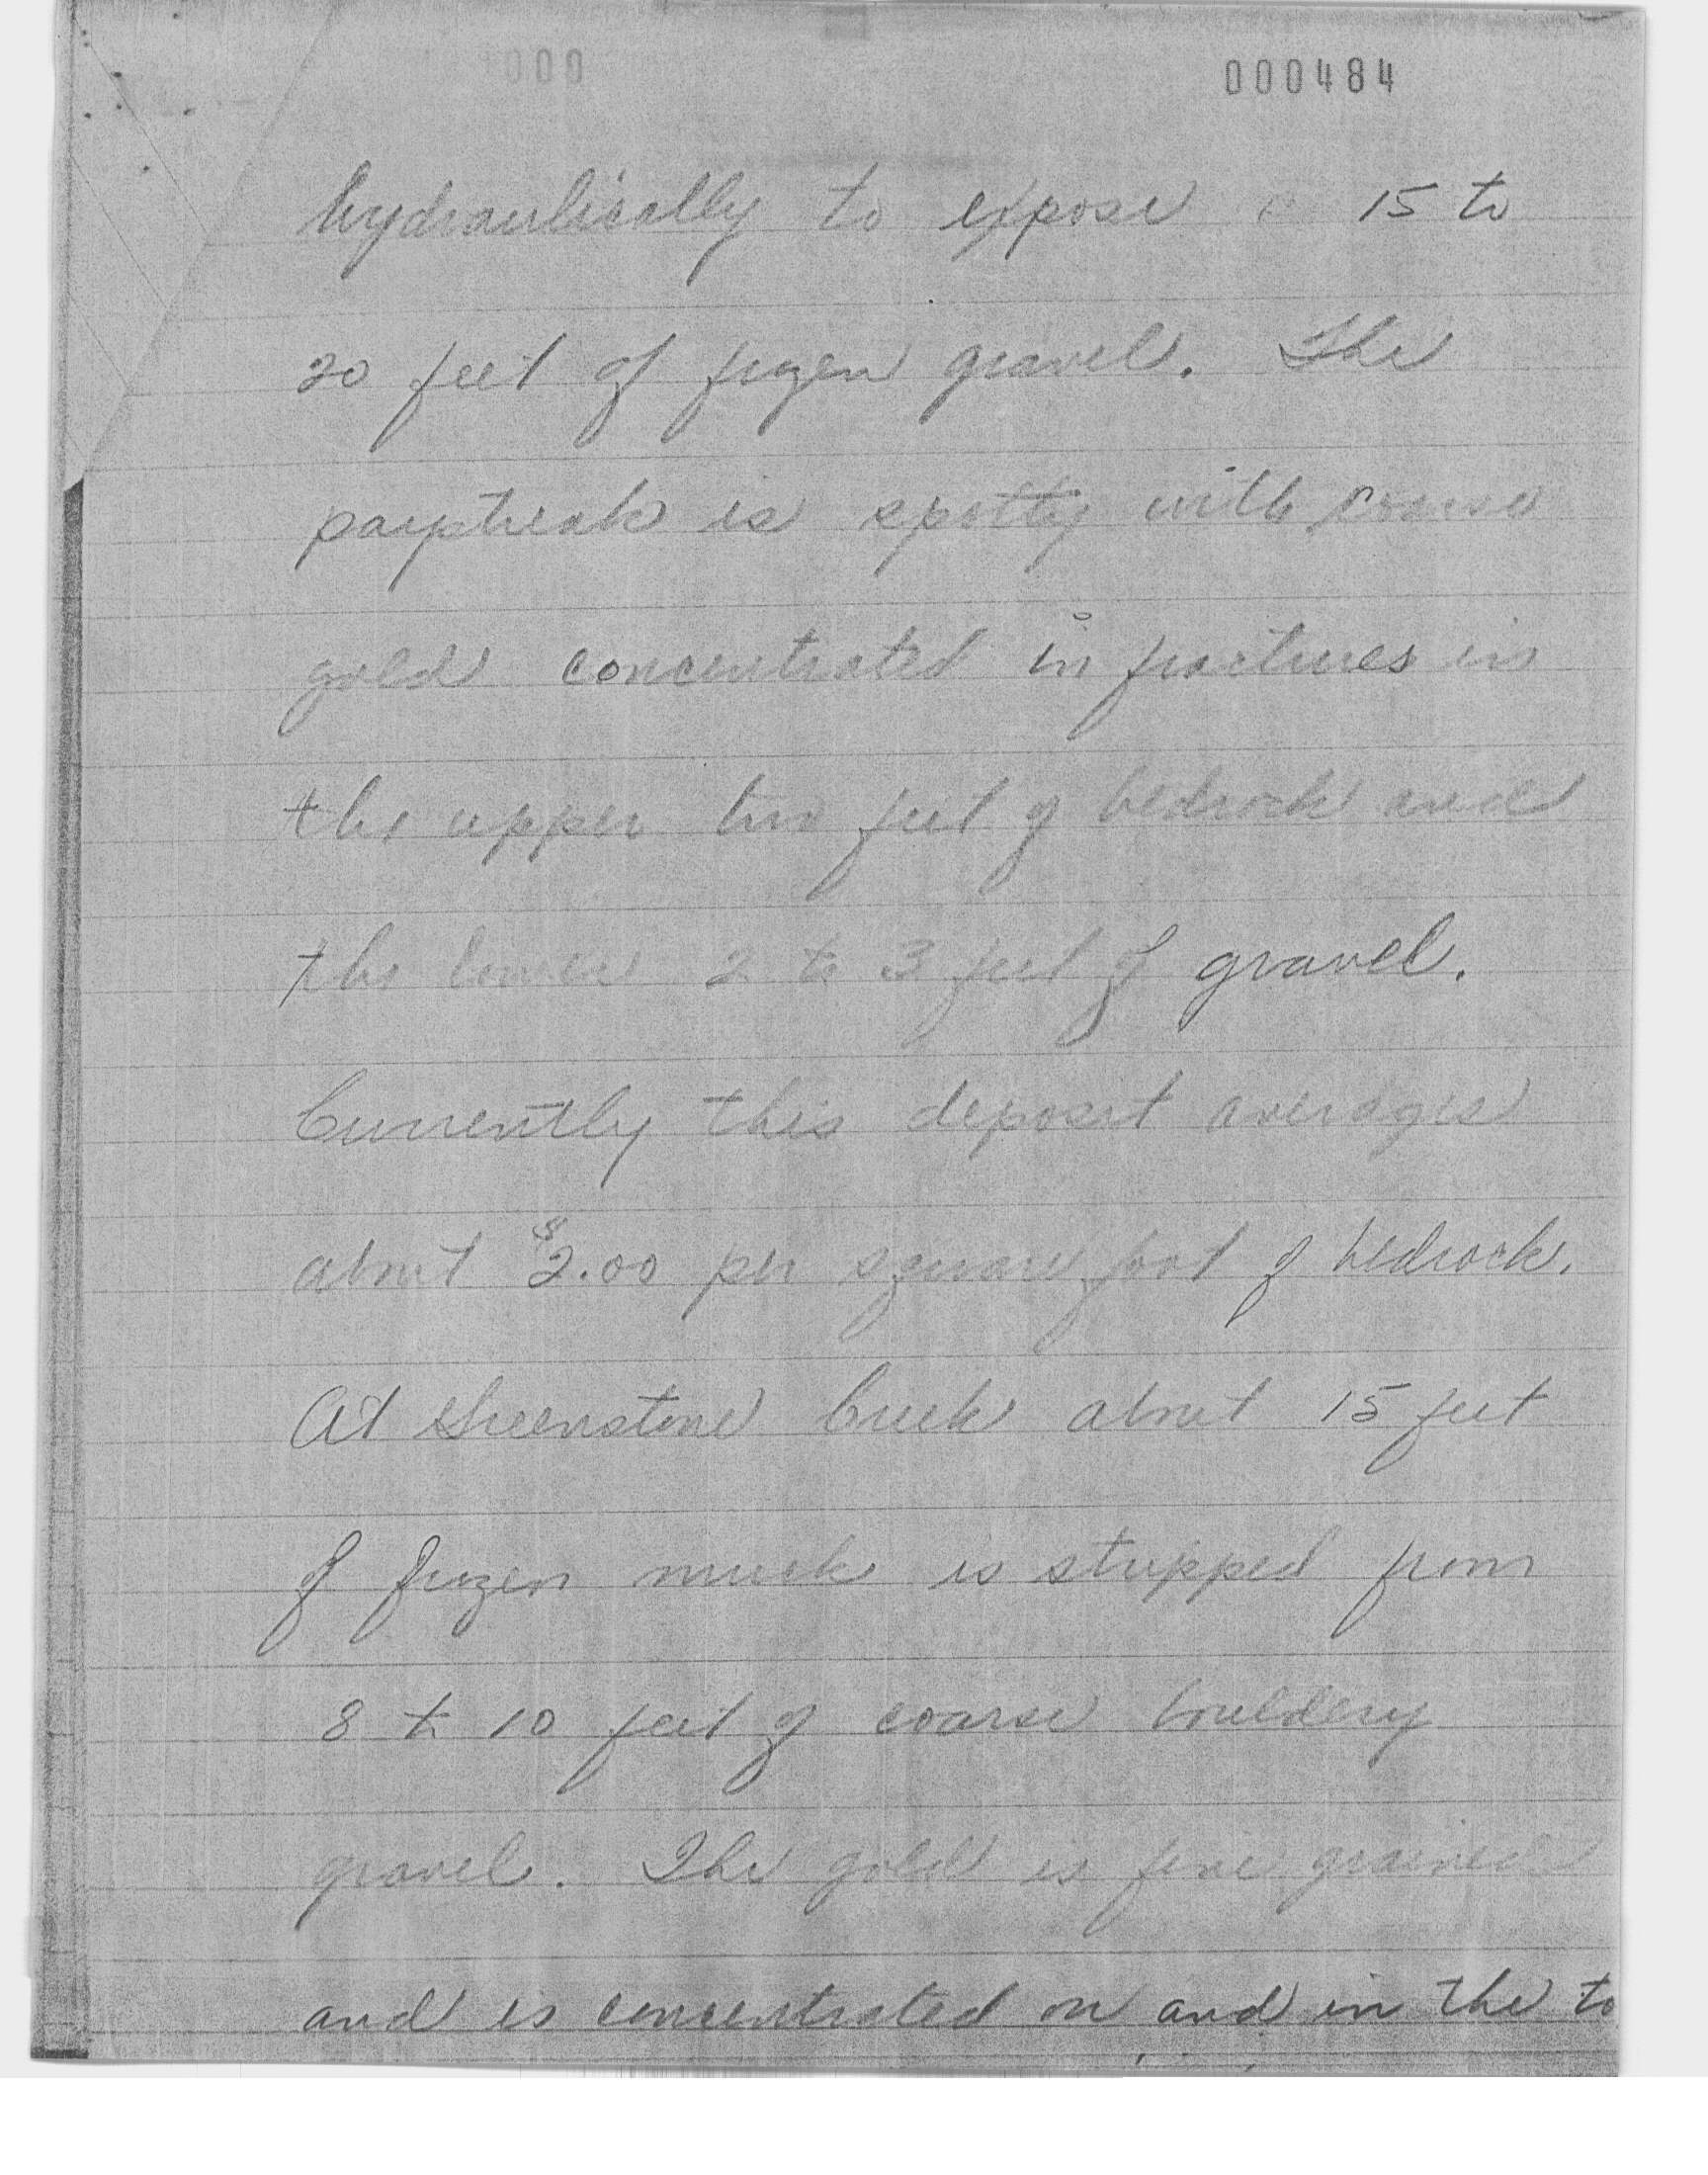 000 000484
hydraulically to expose 15 to
20 feet of frozen gravel. The
paystreak is spotty with coarse
gold concentrated in fractures in
the upper two feet of bedrock and
the lower 2 to 3 feet of gravel.
Currently this deposit averages
about $2.00 per square foot of bedrock.
At Greenstone Creek about 15 feet
of frozen muck is stripped from
8 to 10 feet of coarse bouldery
gravel. The gold is fine grained
and is concentrated on and in the to